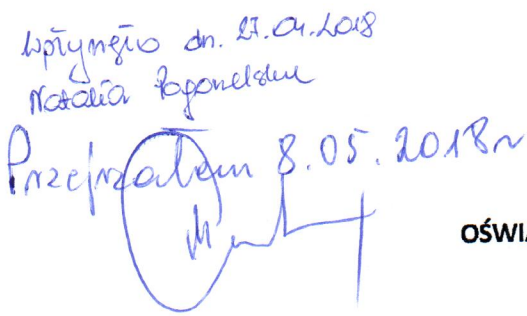 Wpłynęło dn. 27.04.2018
Natalia
Przejrzałem 8.05.2018r
OŚWIA